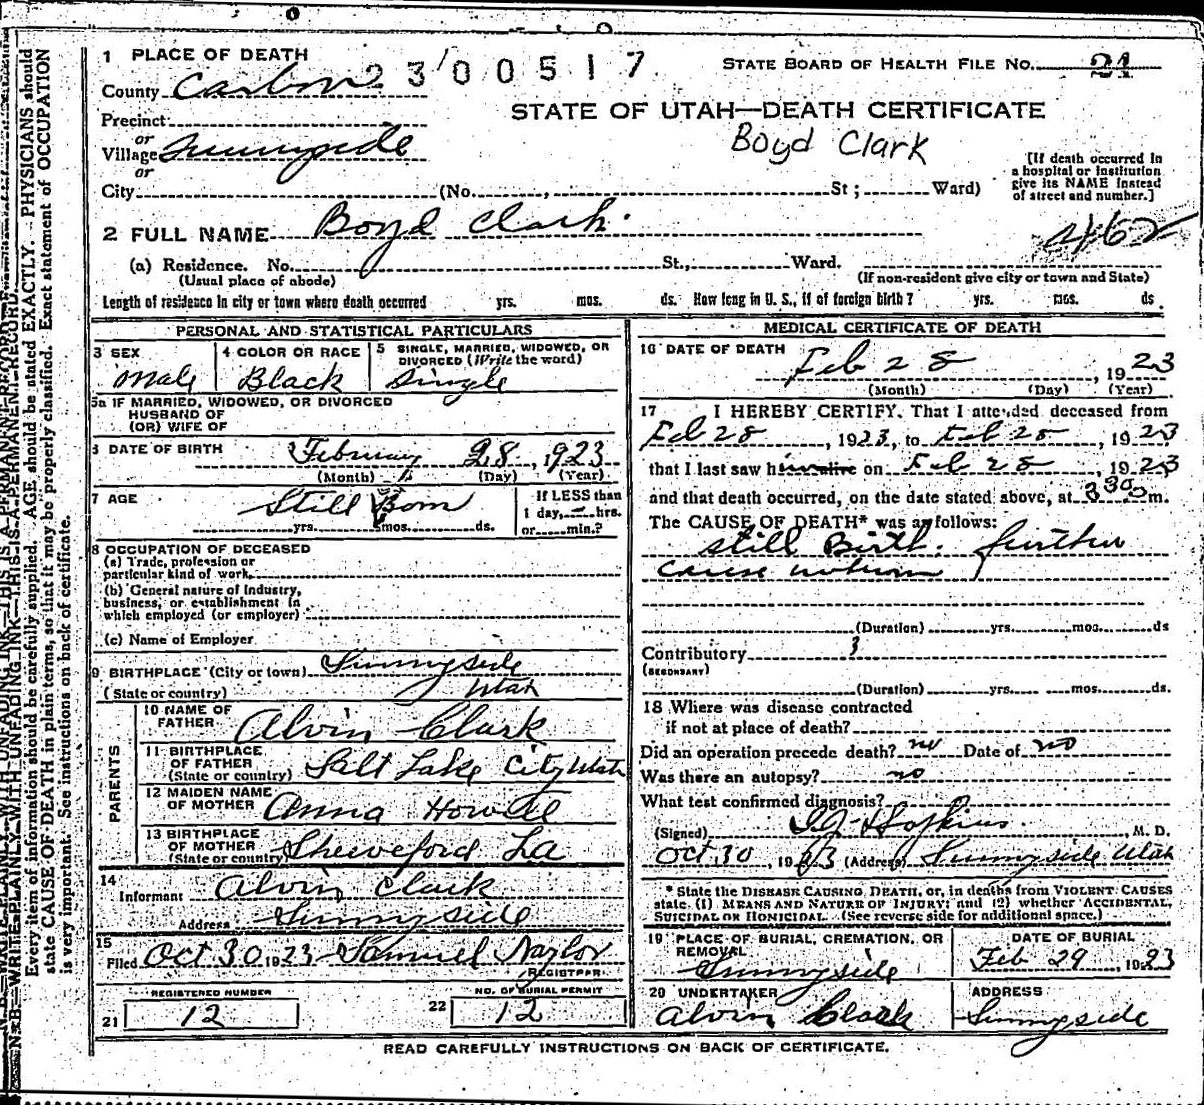 1 PLACE OF DEATH
2300517
STATE BOARD OF HEALTH FILE No. 21
County Carbon
STATE OF UTAH—DEATH CERTIFICATE
Precinct
or
Village Sunnyside
Boyd Clark
or
City (No. , St; Ward)
[If death occurred in
a hospital or institution
give its NAME instead
of street and number.]
2 FULL NAME Boyd Clark
462
(a) Residence. No. St., Ward.
(Usual place of abode) (If non-resident give city or town and State)
Length of residence in city or town where death occurred yrs. mos. ds. How long in U. S., if of foreign birth? yrs. mos. ds
PERSONAL AND STATISTICAL PARTICULARS
3 SEX
Male
4 COLOR OR RACE
Black
5 SINGLE, MARRIED, WIDOWED, OR
DIVORCED (Write the word)
Single
5a IF MARRIED, WIDOWED, OR DIVORCED
HUSBAND OF
(OR) WIFE OF
6 DATE OF BIRTH February 28, 1923
(Month) (Day) (Year)
7 AGE
Still Born
yrs. mos. ds.
If LESS than
1 day, hrs.
or min.?
8 OCCUPATION OF DECEASED
(a) Trade, profession or
particular kind of work
(b) General nature of industry,
business, or establishment in
which employed (or employer)
(c) Name of Employer
9 BIRTHPLACE (City or town) Sunnyside
(State or country) Utah
PARENTS
10 NAME OF
FATHER Alvin Clark
11 BIRTHPLACE
OF FATHER
(State or country) Salt Lake City Utah
12 MAIDEN NAME
OF MOTHER Anna
13 BIRTHPLACE
OF MOTHER
(State or country) La
14
Informant Alvin Clark
Address Sunnyside
15
Filed Oct 30 1923 Samuel Naylor
REGISTRAR
REGISTERED NUMBER
21 12
NO. OF BURIAL PERMIT
22 12
MEDICAL CERTIFICATE OF DEATH
16 DATE OF DEATH
Feb 28, 1923
(Month) (Day) (Year)
17 I HEREBY CERTIFY, That I attended deceased from
Feb 28, 1923, to Feb 28, 1923
that I last saw him alive on Feb 28, 1923
and that death occurred, on the date stated above, at 3 30 m.
The CAUSE OF DEATH* was as follows:
Still Birth. further
cause unknown
(Duration) yrs. mos. ds
Contributory
(SECONDARY)
(Duration) yrs. mos. ds.
18 Where was disease contracted
if not at place of death?
Did an operation precede death? no Date of no
Was there an autopsy? no
What test confirmed diagnosis?
(Signed) Hopkins, M. D.
Oct 30, 1923 (Address) Sunnyside Utah
* State the DISEASE CAUSING DEATH, or, in deaths from VIOLENT CAUSES
state (1) MEANS AND NATURE OF INJURY; and (2) whether ACCIDENTAL,
SUICIDAL OR HOMICIDAL. (See reverse side for additional space.)
19 PLACE OF BURIAL, CREMATION, OR
REMOVAL
Sunnyside
DATE OF BURIAL
Feb 29, 1923
20 UNDERTAKER
Alvin Clark
ADDRESS
Sunnyside
READ CAREFULLY INSTRUCTIONS ON BACK OF CERTIFICATE.
N. B.—WRITE PLAINLY WITH UNFADING INK—THIS IS A PERMANENT RECORD
Every item of information should be carefully supplied. AGE should be stated EXACTLY. PHYSICIANS should
state CAUSE OF DEATH in plain terms, so that it may be properly classified. Exact statement of OCCUPATION
is very important. See instructions on back of certificate.